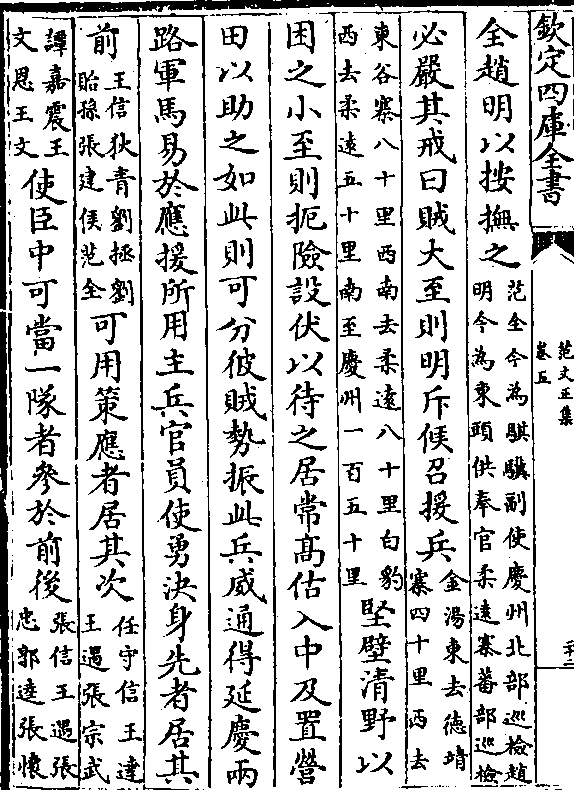 欽定四庫全書
范文正集
卷五
全趙明以按撫之范全今為騏驥副使慶州北部巡檢趙明今為東頭供奉官柔遠寨蕃部巡檢
必嚴其戒曰賊大至則明斥候召援兵金湯東去德靖寨四十里西去
東谷寨八十里西南去柔遠八十里白豹西去柔遠五十里南至慶州一百五十里堅壁清野以
困之小至則扼險設伏以待之居常髙估入中及置營
田以助之如此則可分彼賊勢振此兵威通得延慶兩
路軍馬易於應援所用主兵官員使勇決身先者居其
前王信狄青劉拯劉貽孫張建侯范全可用策應者居其次任守信王達王遇張宗武
譚嘉震王文恩王文使臣中可當一隊者參於前後張信王遇張忠郭逵張懷